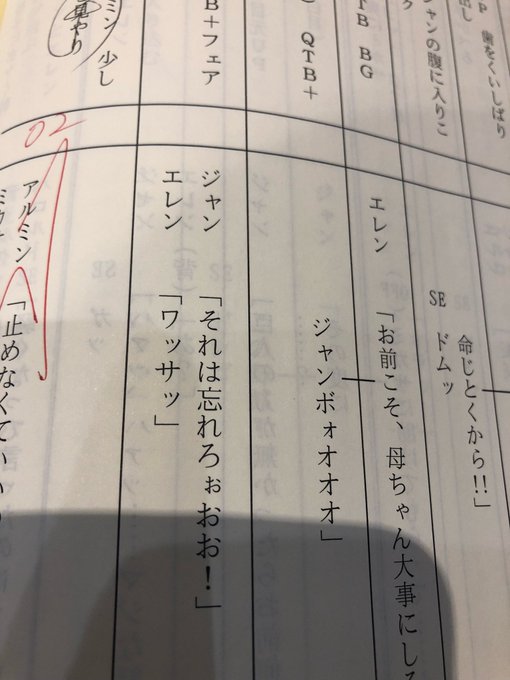 歯をくいしばり
ジャンの腹に入りこ
TB BG
QTB+
B+フェア
ミン 少し
見やり
02
命じとくから!!」
SE ドムッ
エレン 「お前こそ、母ちゃん大事にしろ
ジャンボォオオオ」
ジャン 「それは忘れろぉおお!」
エレン 「ワッサッ」
アルミン 「止めなくていい